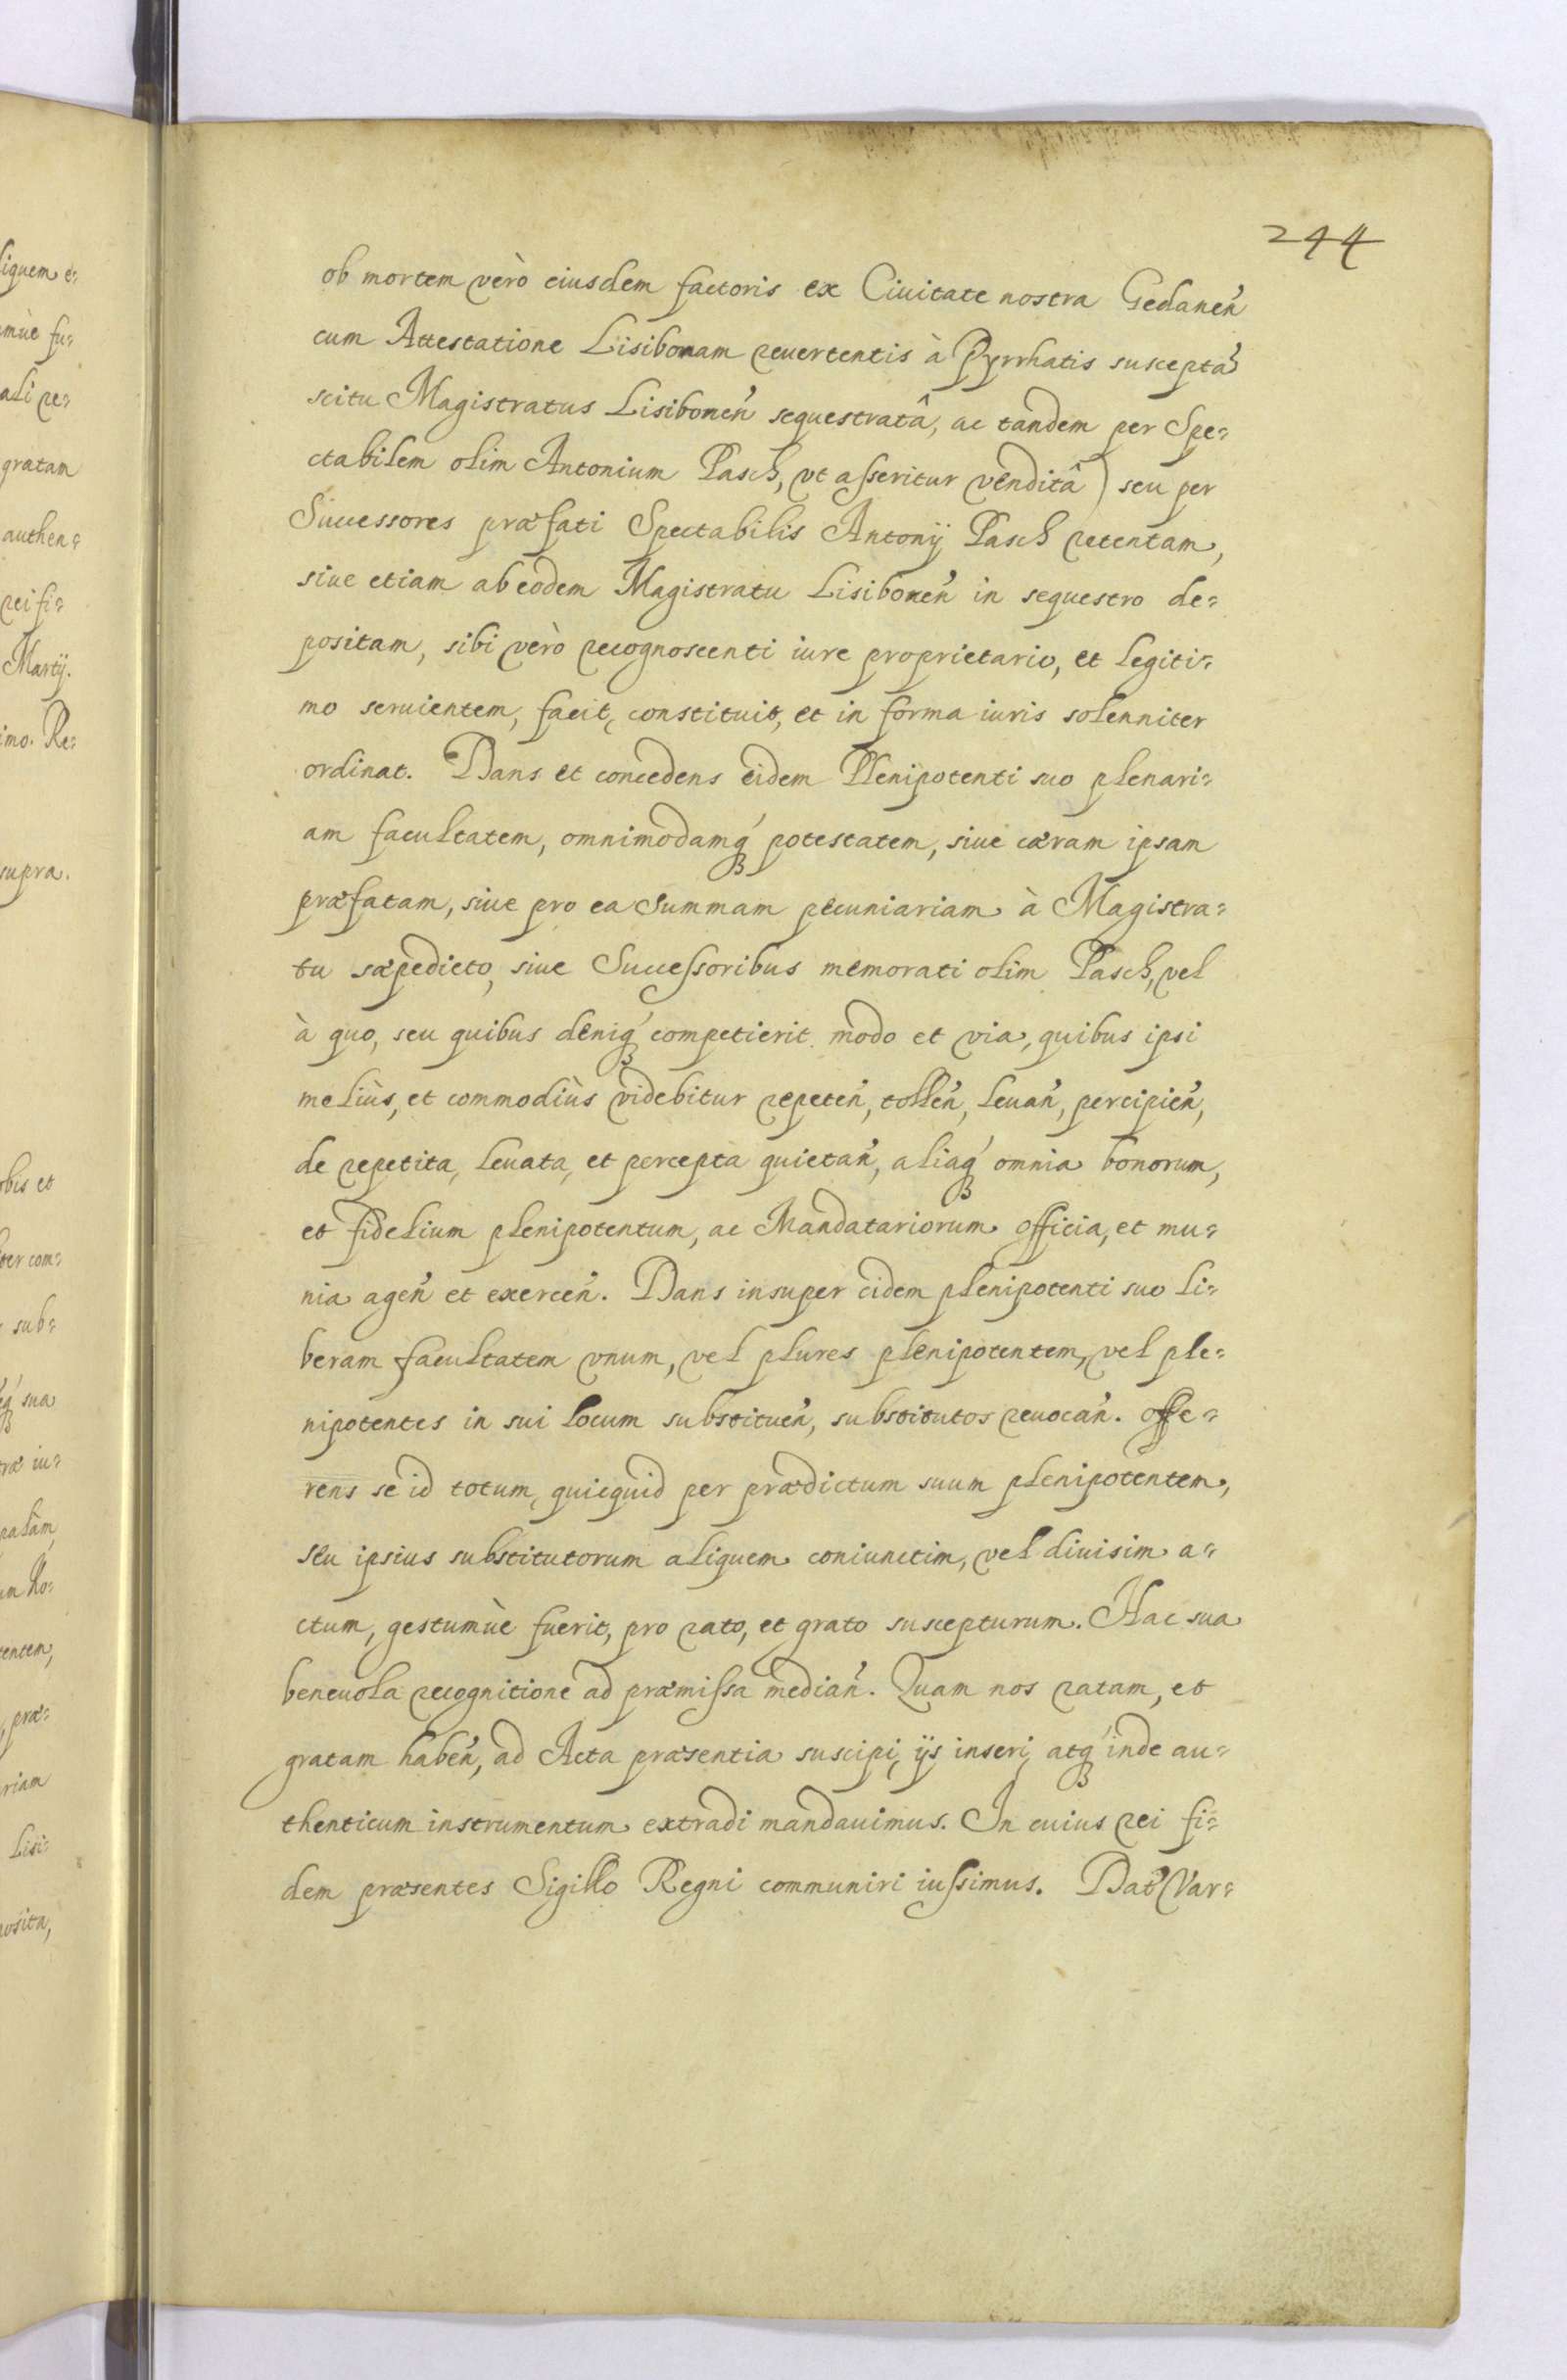 244
ob mortem verò eiusdem factoris ex Ciuitate nostra Gedaneñ
cum Attestatione Lisibonam reuertentis à Pyrrhatis susceptâ
scitu Magistratus Lisiboneñ sequestratâ, ac tandem per Spe=
ctabilem olim Antonium Pasch, vt aſseritur venditâ) seu per
Successores præfati Spectabilis Antonÿ Pasch retentam,
siue etiam ab eodem Magistratu Lisiboneñ in sequestro de=
positam, sibi verò recognoscenti iure proprietario, et legiti=
mo seruientem, facit, constituit, et in forma iuris solenniter
ordinat. Dans et concedens eidem Plenipotenti suo plenari=
am facultatem, omnimodamq́ꝫ potestatem, siue cæram ipsam
præfatam, siue pro ea summam pecuniariam à Magistra=
tu sæpedicto, siue Succeſsoribus memorati olim Pasch, vel
à quo, seu quibus deniq́ꝫ competierit modo et via, quibus ipsi
meliùs, et commodiùs videbitur repeteñ, tolleñ, leuañ, percipieñ,
de repetita, leuata, et percepta quietañ, aliaq́ꝫ omnia bonorum,
et fidelium plenipotentum, ac Mandatariorum officia, et mu=
nia ageñ et exerceñ. Dans insuper eidem plenipotenti suo li=
beram facultatem vnum, vel plures plenipotentem, vel ple=
nipotentes in sui locum substitueñ, substitutos reuocañ. offe=
rens se id totum, quicquid per prædictum suum plenipotentem,
seu ipsius substitutorum aliquem coniunctim, vel diuisim a=
ctum, gestumùe fuerit, pro rato, et grato suscepturum. Hac sua
beneuola recognitione ad præmiſsa mediañ. Quam nos ratam, et
gratam habeñ, ad Acta præsentia suscipi, ijs inseri, atq́ꝫ inde au=
thenticum instrumentum extradi mandauimus. In cuius rei fi=
dem præsentes Sigillo Regni communiri iuſsimus. Dat̃ Var=
liquem e=
mùe fu=
ali re=
gratam
authen=
rei fi=
Martÿ.
imo. Re=
supra.
obis et
ter com=
sub=
eq́ꝫ sua
træ iu=
palàm
um No=
tentem,
, præ=
riam
Lisi=
posita,